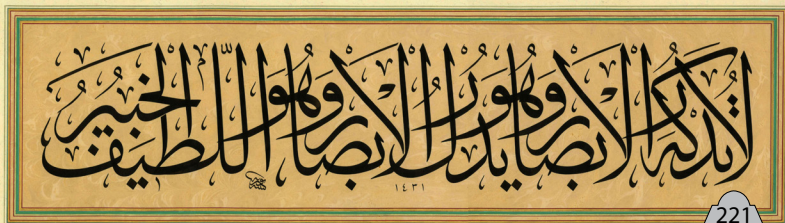 لا تدركه الأبصار وهو يدرك الأبصار وهو اللطيف الخبير
١٤٣١
221